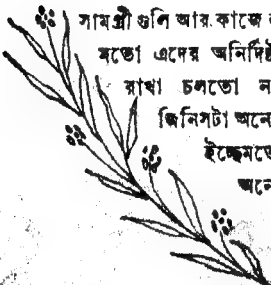 সামগ্রী গুলি আর কাজে
মতো এদের অনির্দিষ্ট
রাখা চলতো
জিনিসটা
ইচ্ছেমতো